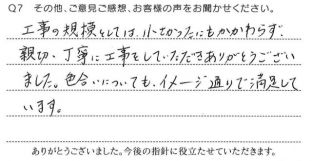 Q7 その他、ご意見ご感想、お客様の声をお聞かせください。
工事の規模としては、小さかったにもかかわらず、
親切、丁寧に工事をしていただきありがとうござい
ました。色合いについても、イメージ通りで満足して
います。
ありがとうございました。今後の指針に役立たせていただきます。